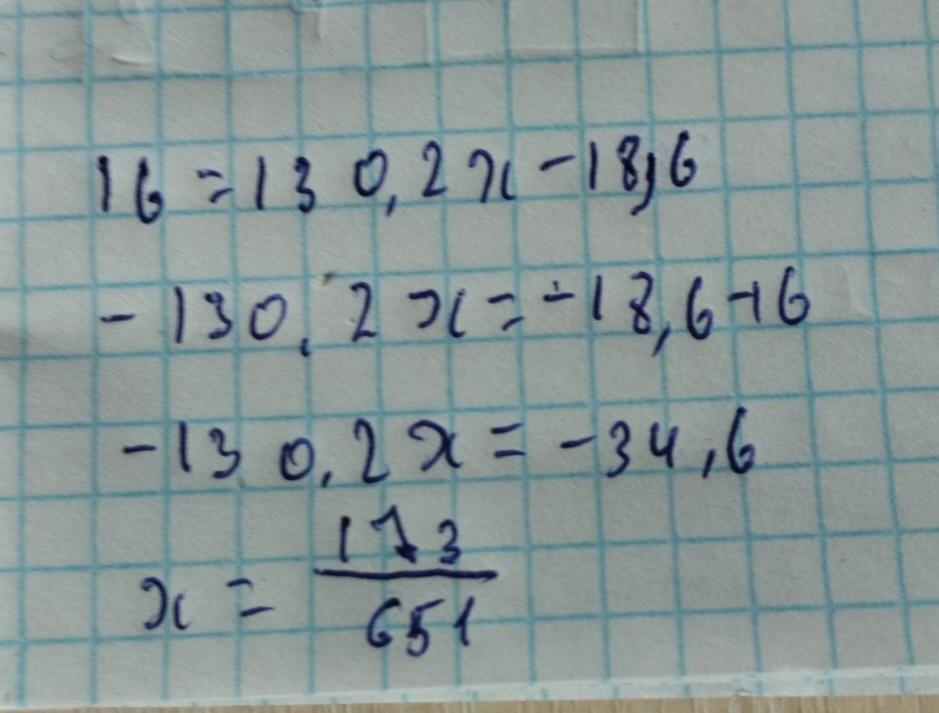 16 = 130,2x - 18,6
-130,2x = -18,6-16
-130,2x = -34,6
x = 173/651